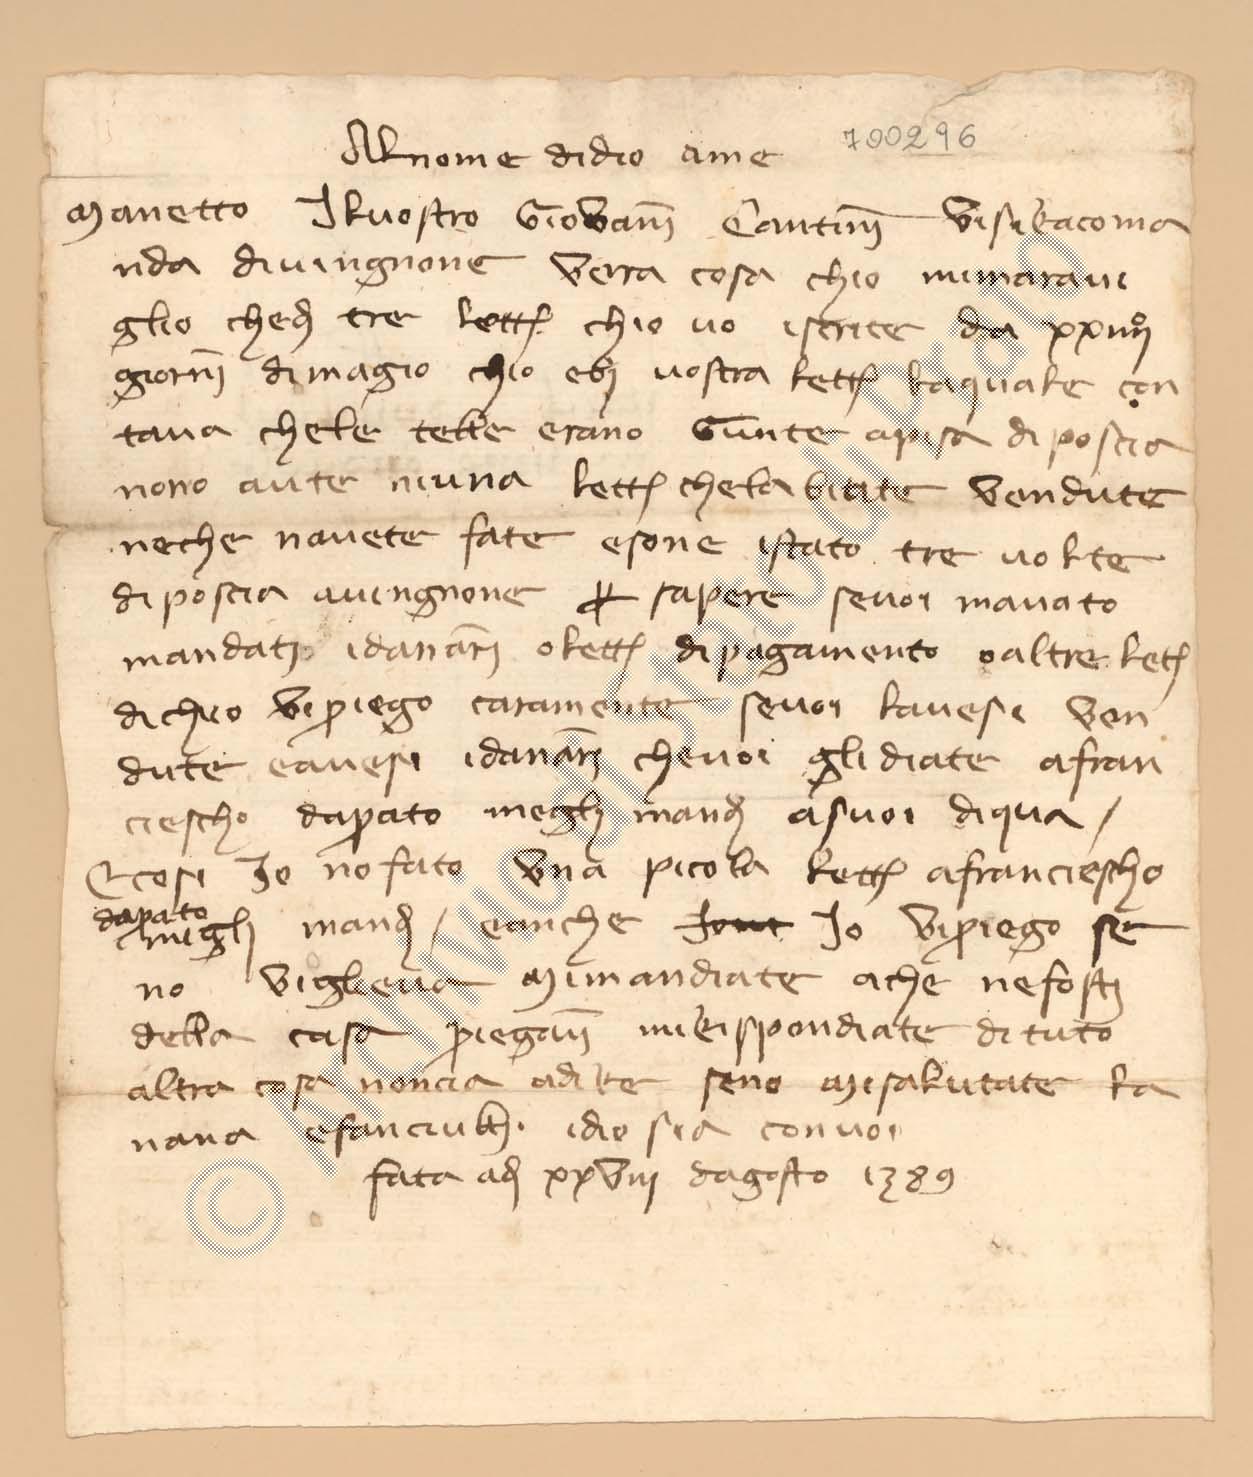 Al nome didio ame
700296
Manetto Il vostro Giovanī Cantinī visiracoma
nda divingnone verra cosa chio mimaravi
glio ched tre lett chio vo iscrite da xxiiii°
giornī dimagio chio ebi vostra lett laquale con
tava chele telle erano Gunte apisa diposcia
nono aute niuna lett chela biate vendute
neche navete fate esone istato tre volte
diposcia avingnone p sapere sevoi mavato
mandati idanāri olett dipagamento o altre lett
dichio vipriego caramente sevoi lavesi ven
dute eavesi idanāri chevoi glidiate afran
ciescho daprato megli mand asuoi diqua /
E cosi Io nofato una picola lett afranciescho
daprato
megli mand / eanche Io vipriego se
no viglieva Mimandiate ache nefosti
della casa priegavi mirispondiate dituto
altra cosa noncia adire seno Misalutate la
nana efanciulli idio sia convoi
fata ad xxviii dagosto 1389
© Archivio di Stato di Prato